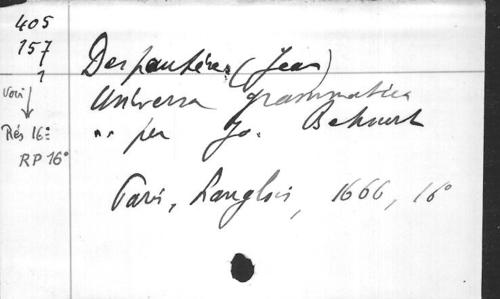 405
157
1
Voir
Rés 16=
RP 16°
Despautère (Jean)
Universa grammatica
.. per Jo. Behourt
Paris, Langlois, 1666, 16°